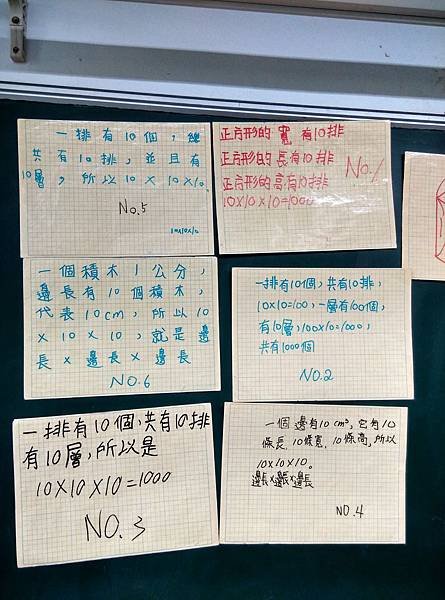 一排有10個，總
共有10排，並且有
10層，所以10×10×10。
No.5
10×10×10
正方形的寬有10排
正方形的長有10排
正方形的高有10排
10×10×10=1000
No.1
一個積木1公分，
邊長有10個積木，
代表10cm，所以10
×10×10，就是邊
長×邊長×邊長
NO.6
一排有10個，共有10排，
10×10=100，一層有100個，
有10層，100×10=1000，
共有1000個
NO.2
一排有10個，共有10排
有10層，所以是
10×10×10=1000
NO.3
一個邊有10cm³，它有10
條長，10條寬，10條高，所以
10×10×10。
邊長×邊長×邊長
NO.4